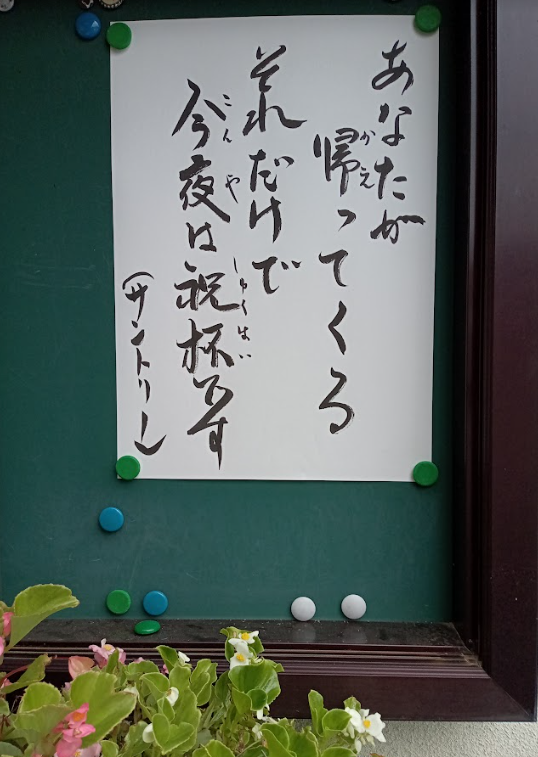 あなたが
帰ってくる
それだけで
今夜は祝杯です
(サントリー)
かえ
こんや
しゅくはい